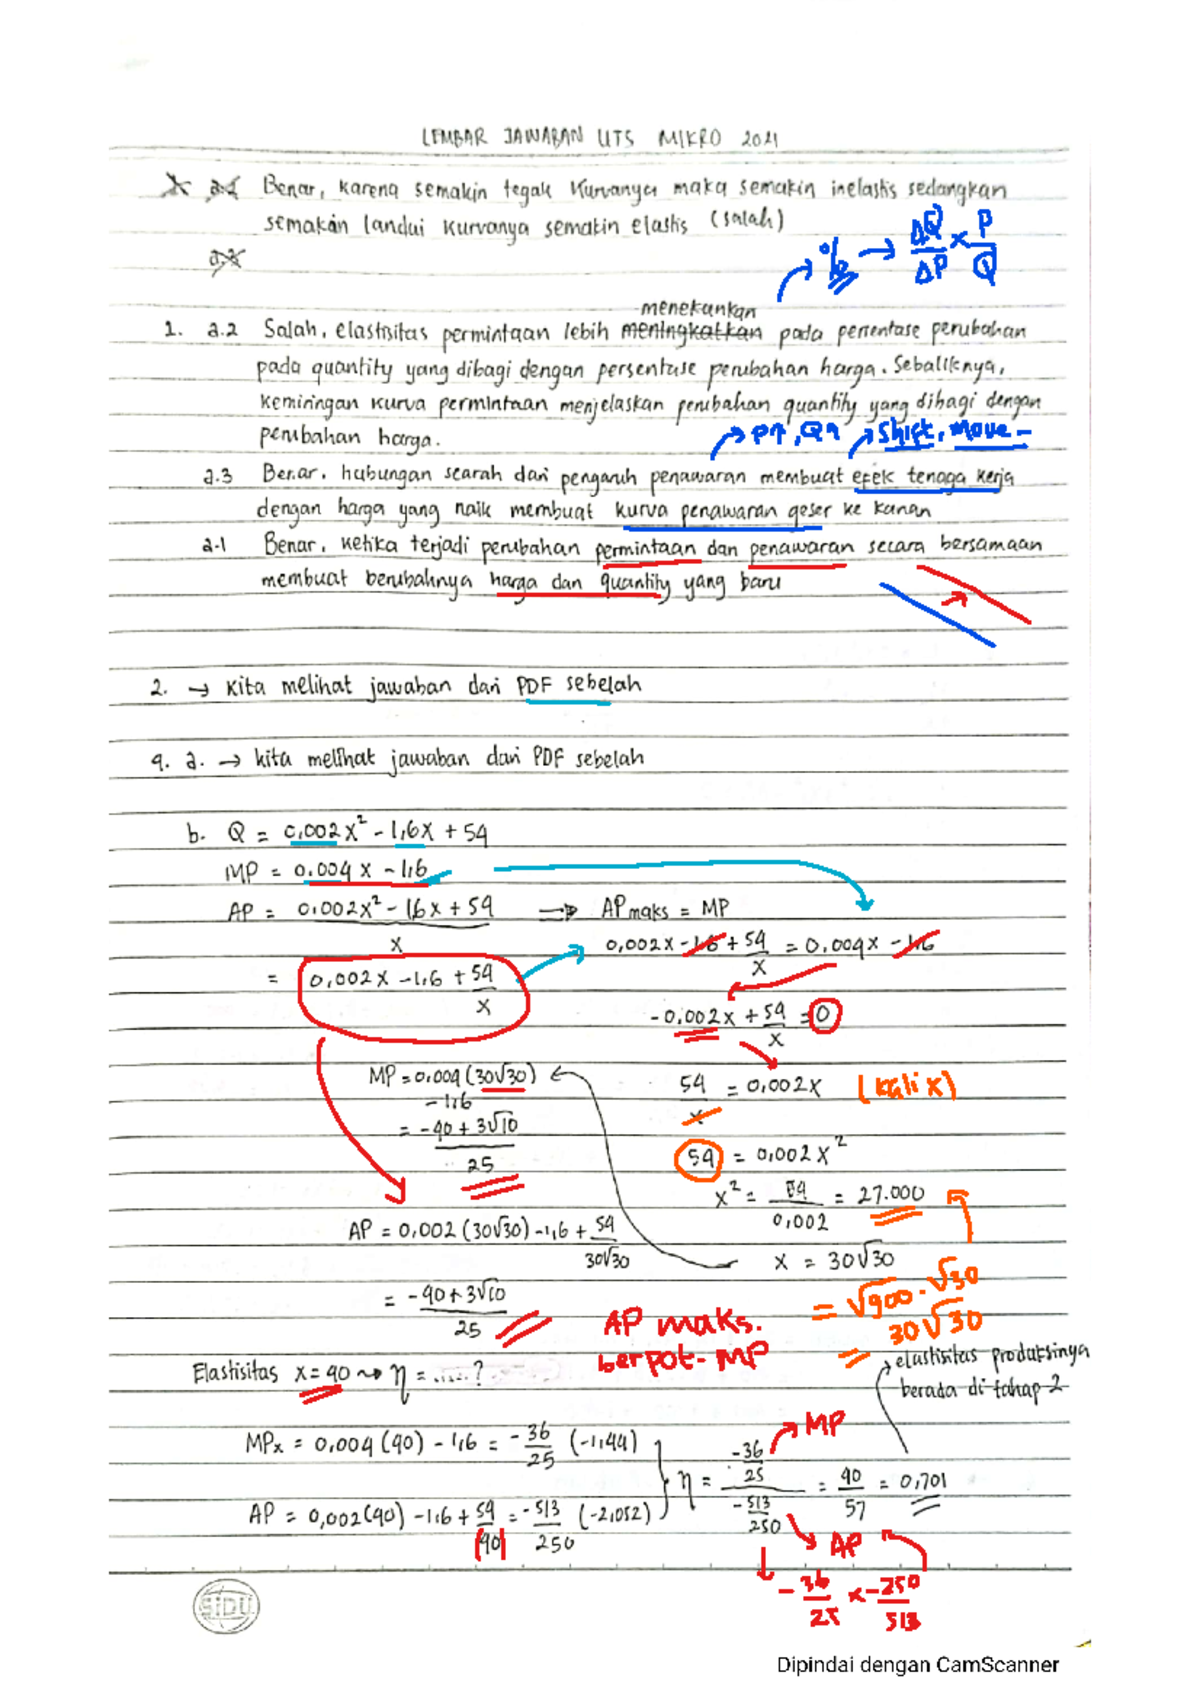 LEMBAR JAWABAN UTS MIKRO 2021
Benar, karena semakin tegak kurvanya maka semakin inelastis sedangkan
semakin landai kurvanya semakin elastis (salah)
→ % → ΔQ/ΔP × P/Q
menekankan
1. a.2 Salah, elastisitas permintaan lebih meningkatkan pada persentase perubahan
pada quantity yang dibagi dengan persentase perubahan harga. Sebaliknya,
kemiringan kurva permintaan menjelaskan perubahan quantity yang dibagi dengan
perubahan harga.
→ P↑, Q↑ → Shift, Move -
a.3 Benar, hubungan searah dari pengaruh penawaran membuat efek tenaga kerja
dengan harga yang naik membuat kurva penawaran geser ke kanan
a.1 Benar, ketika terjadi perubahan permintaan dan penawaran secara bersamaan
membuat berubahnya harga dan quantity yang baru
2. → Kita melihat jawaban dari PDF sebelah
4. a. → kita melihat jawaban dari PDF sebelah
b. Q = 0,002x² - 1,6x + 54
MP = 0.004x - 1,6
AP = 0.002x² - 1,6x + 54 / x ⇒ AP maks = MP
0,002x - 1,6 + 54/x = 0,004x - 1,6
= 0,002x - 1,6 + 54/x
-0.002x + 54/x = 0
MP = 0.004 (30√30) - 1,6
54/x = 0,002x (kali x)
= -40 + 3√10 / 25
54 = 0,002x²
x² = 54/0,002 = 27.000
AP = 0,002 (30√30) - 1,6 + 54/30√30
x = 30√30
= -40 + 3√10 / 25
= √900 . √30
= 30√30
AP maks.
berpot- MP
Elastisitas x = 40 → η = ..... ?
→ elastisitas produksinya
berada di tahap 2
MPx = 0,004 (40) - 1,6 = -36/25 (-1,44)
→ MP
η = -36/25 / -513/250 = 40/57 = 0,701
AP = 0,002(40) - 1,6 + 54/(40) = -513/250 (-2,052)
→ AP
-36/25 x -250/513
SIDU
Dipindai dengan CamScanner